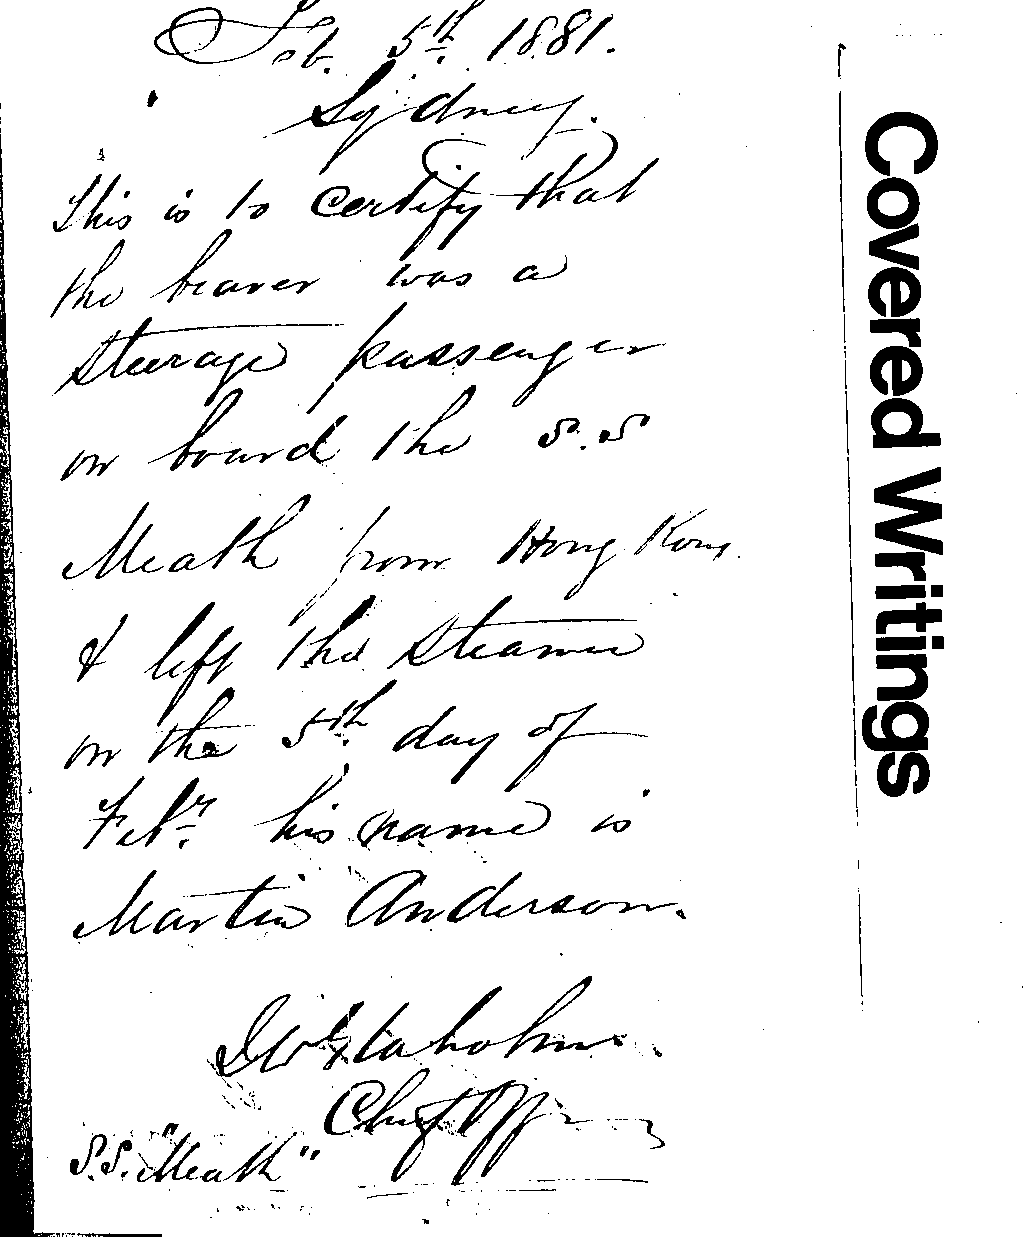 Feb. 5th 1881.
Sydney.
This is to certify that
the bearer was a
steerage passenger
on board the S.S
Meath from Hong Kong.
& left the steamer
on the 5th day of
Feby. his name is
Martin Anderson.
Chief Officer
S.S. "Meath"
Covered Writings